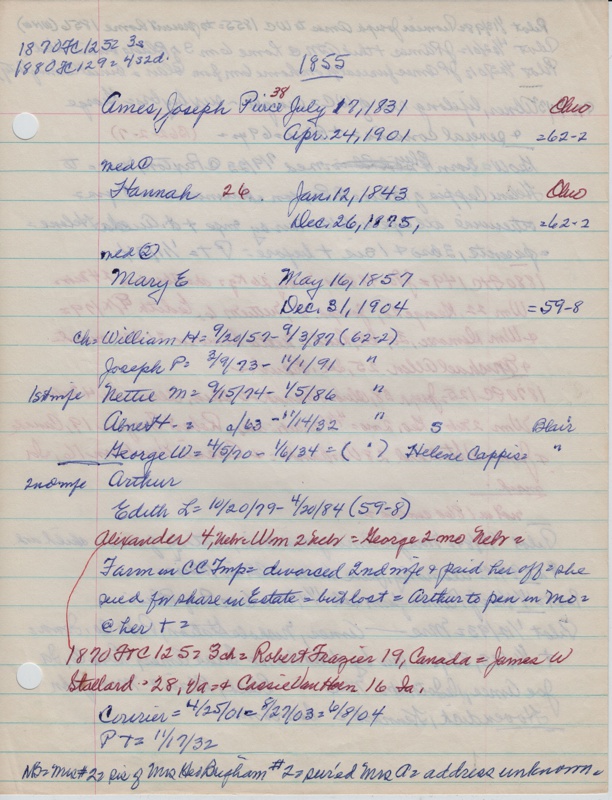 1870 FC 125 = 3s
1880 FC 129 = 4s2d.
1855
Ames, Joseph Pierce 38 July 17, 1831 Ohio
Apr. 24, 1901 = 62-2
med ①
Hannah 26. Jan. 12, 1843 Ohio
Dec. 26, 1875, = 62-2
med ②
Mary E May 16, 1857
Dec. 31, 1904 = 59-8
Ch = William H = 9/20/57 - 9/3/87 (62-2)
Joseph P = 3/9/73 - 11/1/91 "
1st wife Nettie M = 9/15/74 - 1/5/86 "
Abner H - = a/63 - 11/14/32 " S Blair
George W = 4/5/70 - 1/6/34 = ( " ) Helene Cappis = "
2nd wife Arthur
Edith L = 10/20/79 - 4/20/84 (59-8)
Alexander 4, Nebr = Wm 2 Nebr = George 2 mo Nebr =
Farm in CC Tmp = divorced 2nd wife + paid her off = she
sued for share in Estate = but lost = Arthur to pen in Mo =
@ her + =
1870 FC 125 = 3 ch = Robert Frazier 19, Canada = James W
Stallard = 28, Va = + Cassie Van Horn 16 Ia.
Courier = 4/25/01 = 8/27/03 = 6/8/04
P T = 11/17/32
NB = Mrs #2 = sis of Mrs Geo Brigham #2 = surv'd Mrs A = address unknown =